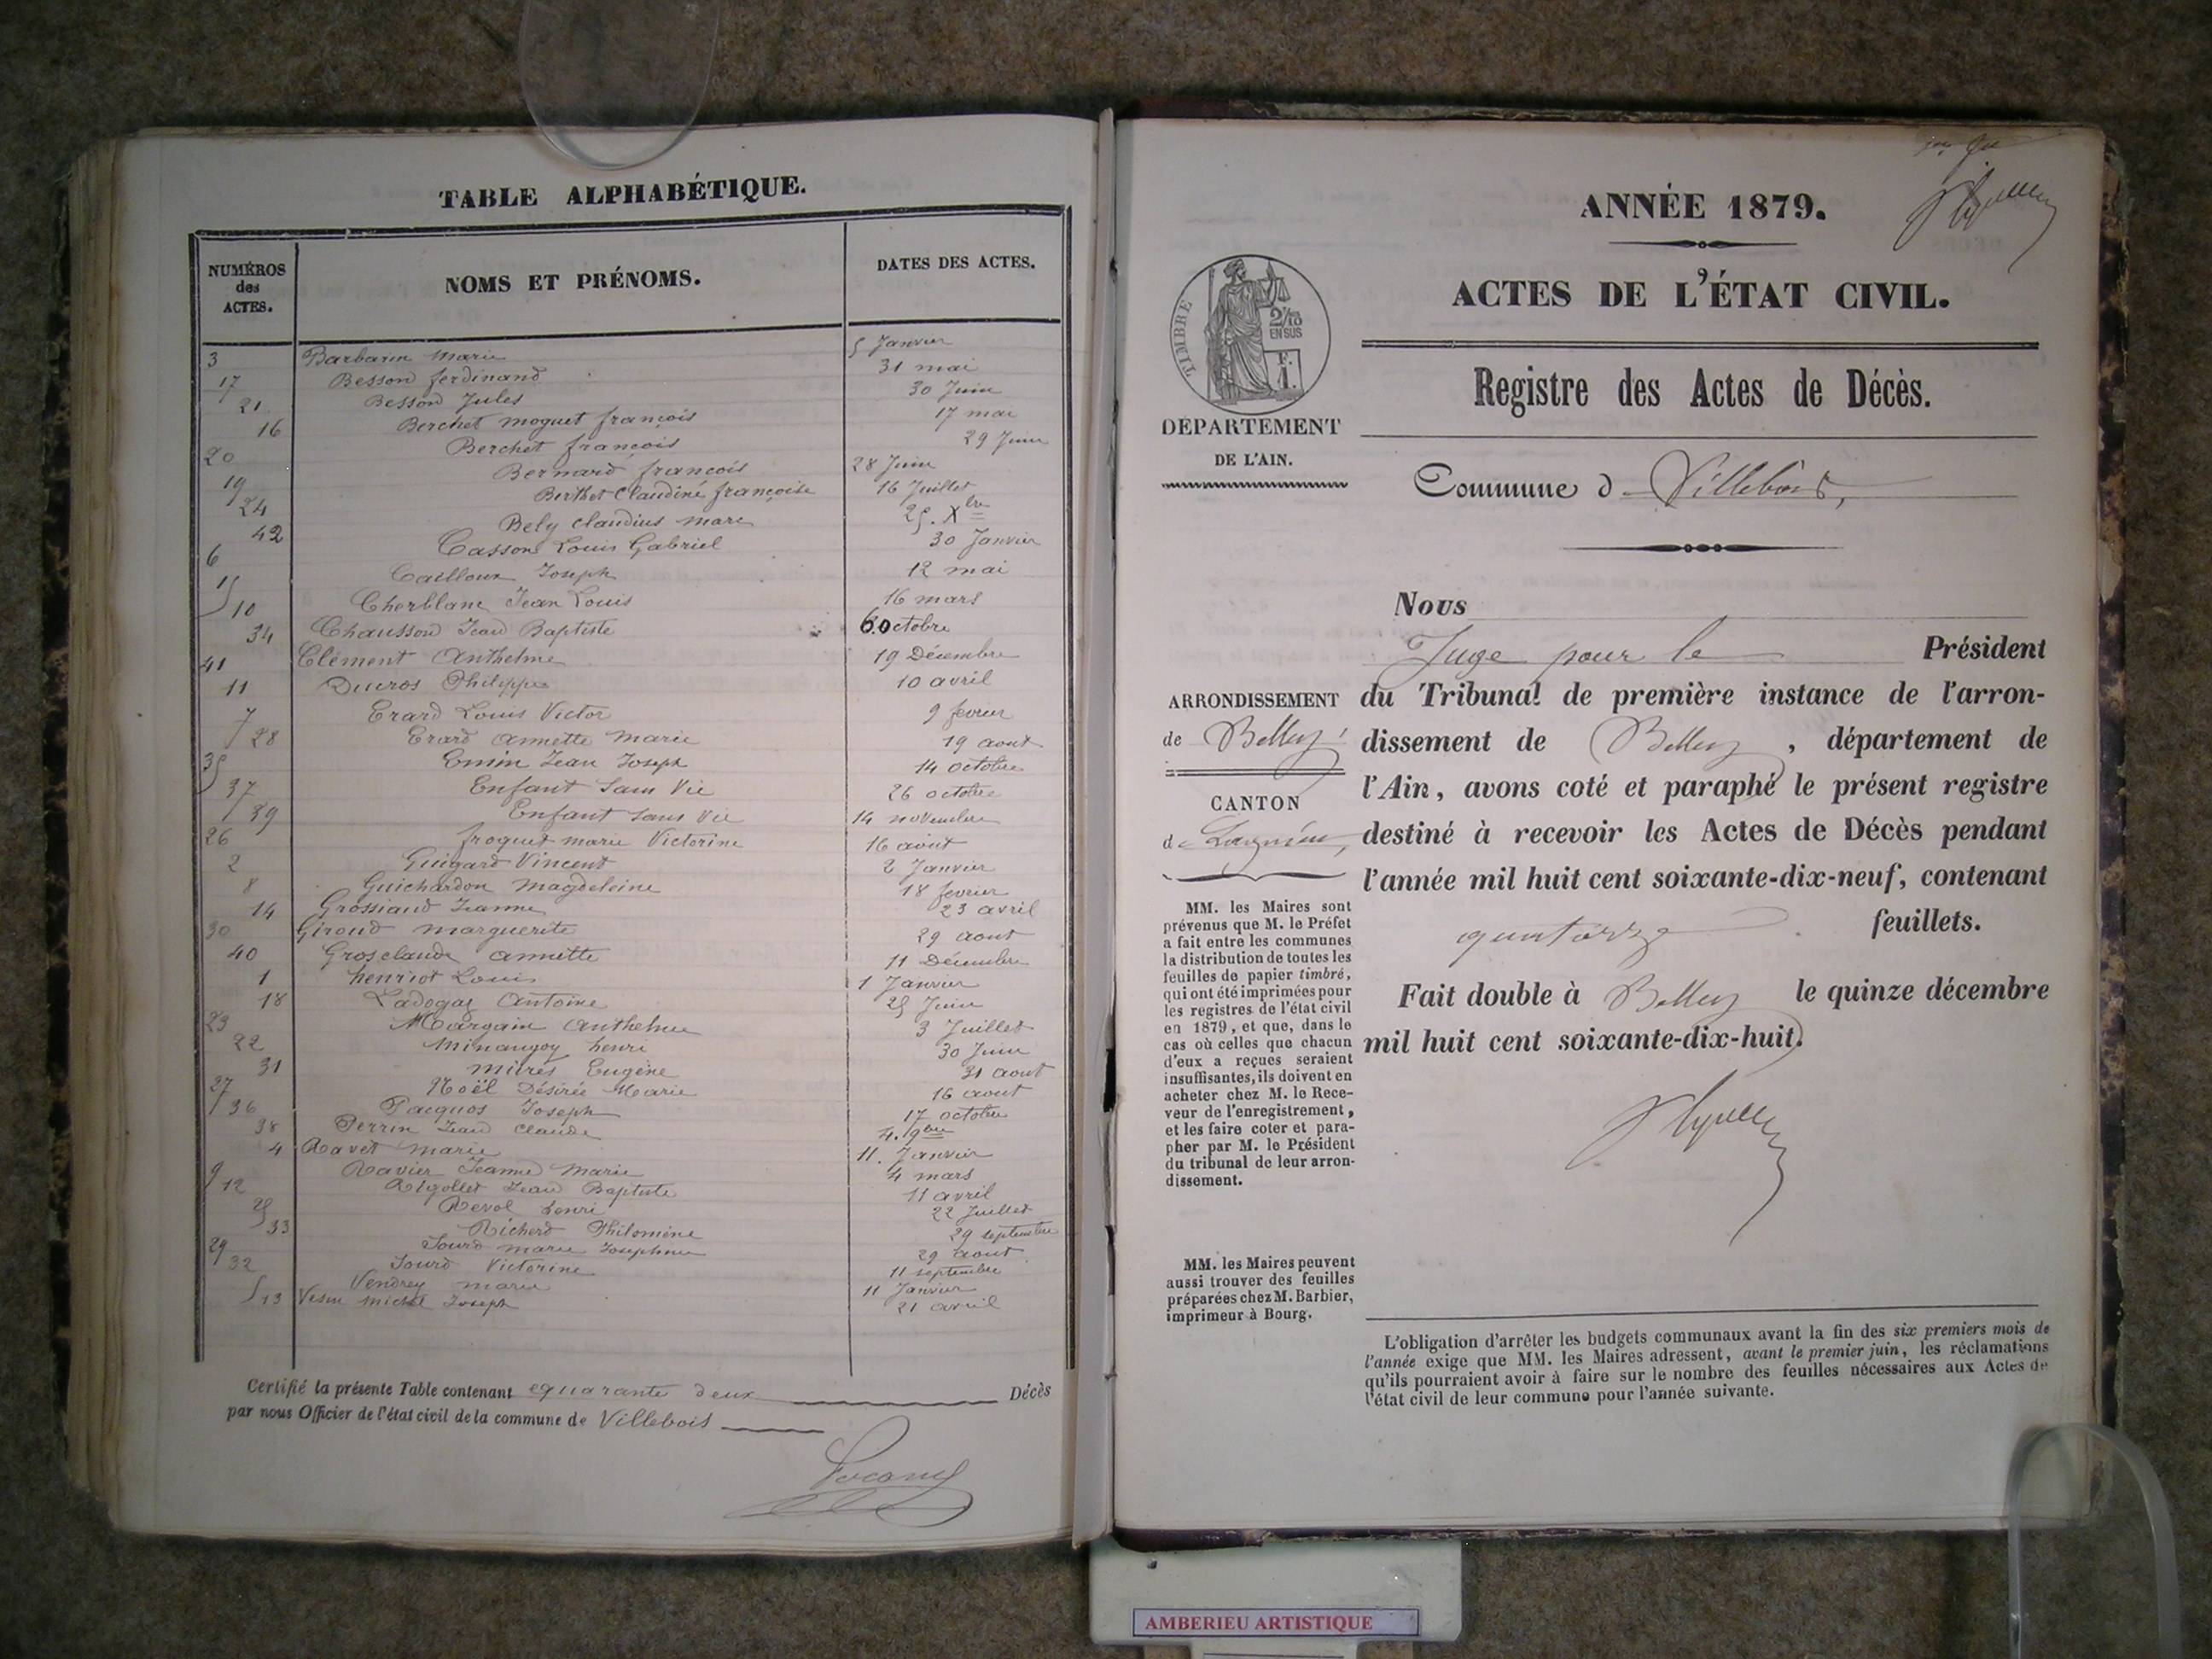 TABLE ALPHABÉTIQUE.
NUMÉROS des ACTES.
NOMS ET PRÉNOMS.
DATES DES ACTES.
3 Barbarin Marie 5 Janvier
17 Besson ferdinand 31 mai
21 Besson Jules 30 Juin
16 Berchet moguet françois 17 mai
20 Berchet françois 29 Juin
19 Bernard françois 28 Juin
24 Berthet Claudine françoise 16 Juillet
42 Bely claudius marc 25. Xbre
6 Casson Louis Gabriel 30 Janvier
15 Cailloux Joseph 12 mai
10 Cherblanc Jean Louis 16 mars
34 Chausson Jean Baptiste 6 octobre
41 Clément Anthelme 19 Décembre
11 Ducros Philippe 10 avril
7 Erard Louis Victor 9 fevrier
28 Erard Annette Marie 19 aout
35 Emin Jean Joseph 14 octobre
37 Enfant Sans Vie 26 octobre
39 Enfant sans Vie 14 novembre
26 froquet marie Victorine 16 août
2 Guigard Vincent 2 Janvier
8 Guichardon Magdeleine 18 fevrier
14 Grossiand Jeanne 23 avril
30 Giroud marguerite 29 aout
40 Grosclaude annette 11 Décembre
1 henriot Louis 1 Janvier
18 Ladogaz Antoine 25 Juin
23 Margain Anthelme 3 Juillet
22 Minangoy henri 30 Juin
31 Murès Eugène 31 aout
27 Noël Désirée Marie 16 aout
36 Pacquos Joseph 17 octobre
38 Perrin Jean Claude 4. 9bre
4 Ravet marie 11. Janvier
9 Ravier Jeanne Marie 4 mars
12 Rigollet Jean Baptiste 11 avril
25 Revol henri 22 Juillet
33 Richerd Philomène 29 septembre
29 Sourd marie Josephine 29 aout
32 Sourd Victorine 11 septembre
5 Vendrey marie 11 Janvier
13 Vesin michel Joseph 21 avril
Certifié la présente Table contenant quarante deux Décès
par nous Officier de l'état civil de la commune de Villebois
ANNÉE 1879.
ACTES DE L'ÉTAT CIVIL.
TIMBRE
2/10
EN SUS
F.
1.
DÉPARTEMENT
DE L'AIN.
Registre des Actes de Décès.
Commune d Villebois,
Nous
Juge pour le Président
du Tribunal de première instance de l'arron-
dissement de Belley, département de
l'Ain, avons coté et paraphé le présent registre
destiné à recevoir les Actes de Décès pendant
l'année mil huit cent soixante-dix-neuf, contenant
quatorze feuillets.
Fait double à Belley le quinze décembre
mil huit cent soixante-dix-huit.
ARRONDISSEMENT
de Belley
CANTON
de Lagnieu,
MM. les Maires sont
prévenus que M. le Préfet
a fait entre les communes
la distribution de toutes les
feuilles de papier timbré,
qui ont été imprimées pour
les registres de l'état civil
en 1879, et que, dans le
cas où celles que chacun
d'eux a reçues seraient
insuffisantes, ils doivent en
acheter chez M. le Rece-
veur de l'enregistrement,
et les faire coter et para-
pher par M. le Président
du tribunal de leur arron-
dissement.
MM. les Maires peuvent
aussi trouver des feuilles
préparées chez M. Barbier,
imprimeur à Bourg.
L'obligation d'arrêter les budgets communaux avant la fin des six premiers mois de
l'année exige que MM. les Maires adressent, avant le premier juin, les réclamations
qu'ils pourraient avoir à faire sur le nombre des feuilles nécessaires aux Actes de
l'état civil de leur commune pour l'année suivante.
AMBERIEU ARTISTIQUE